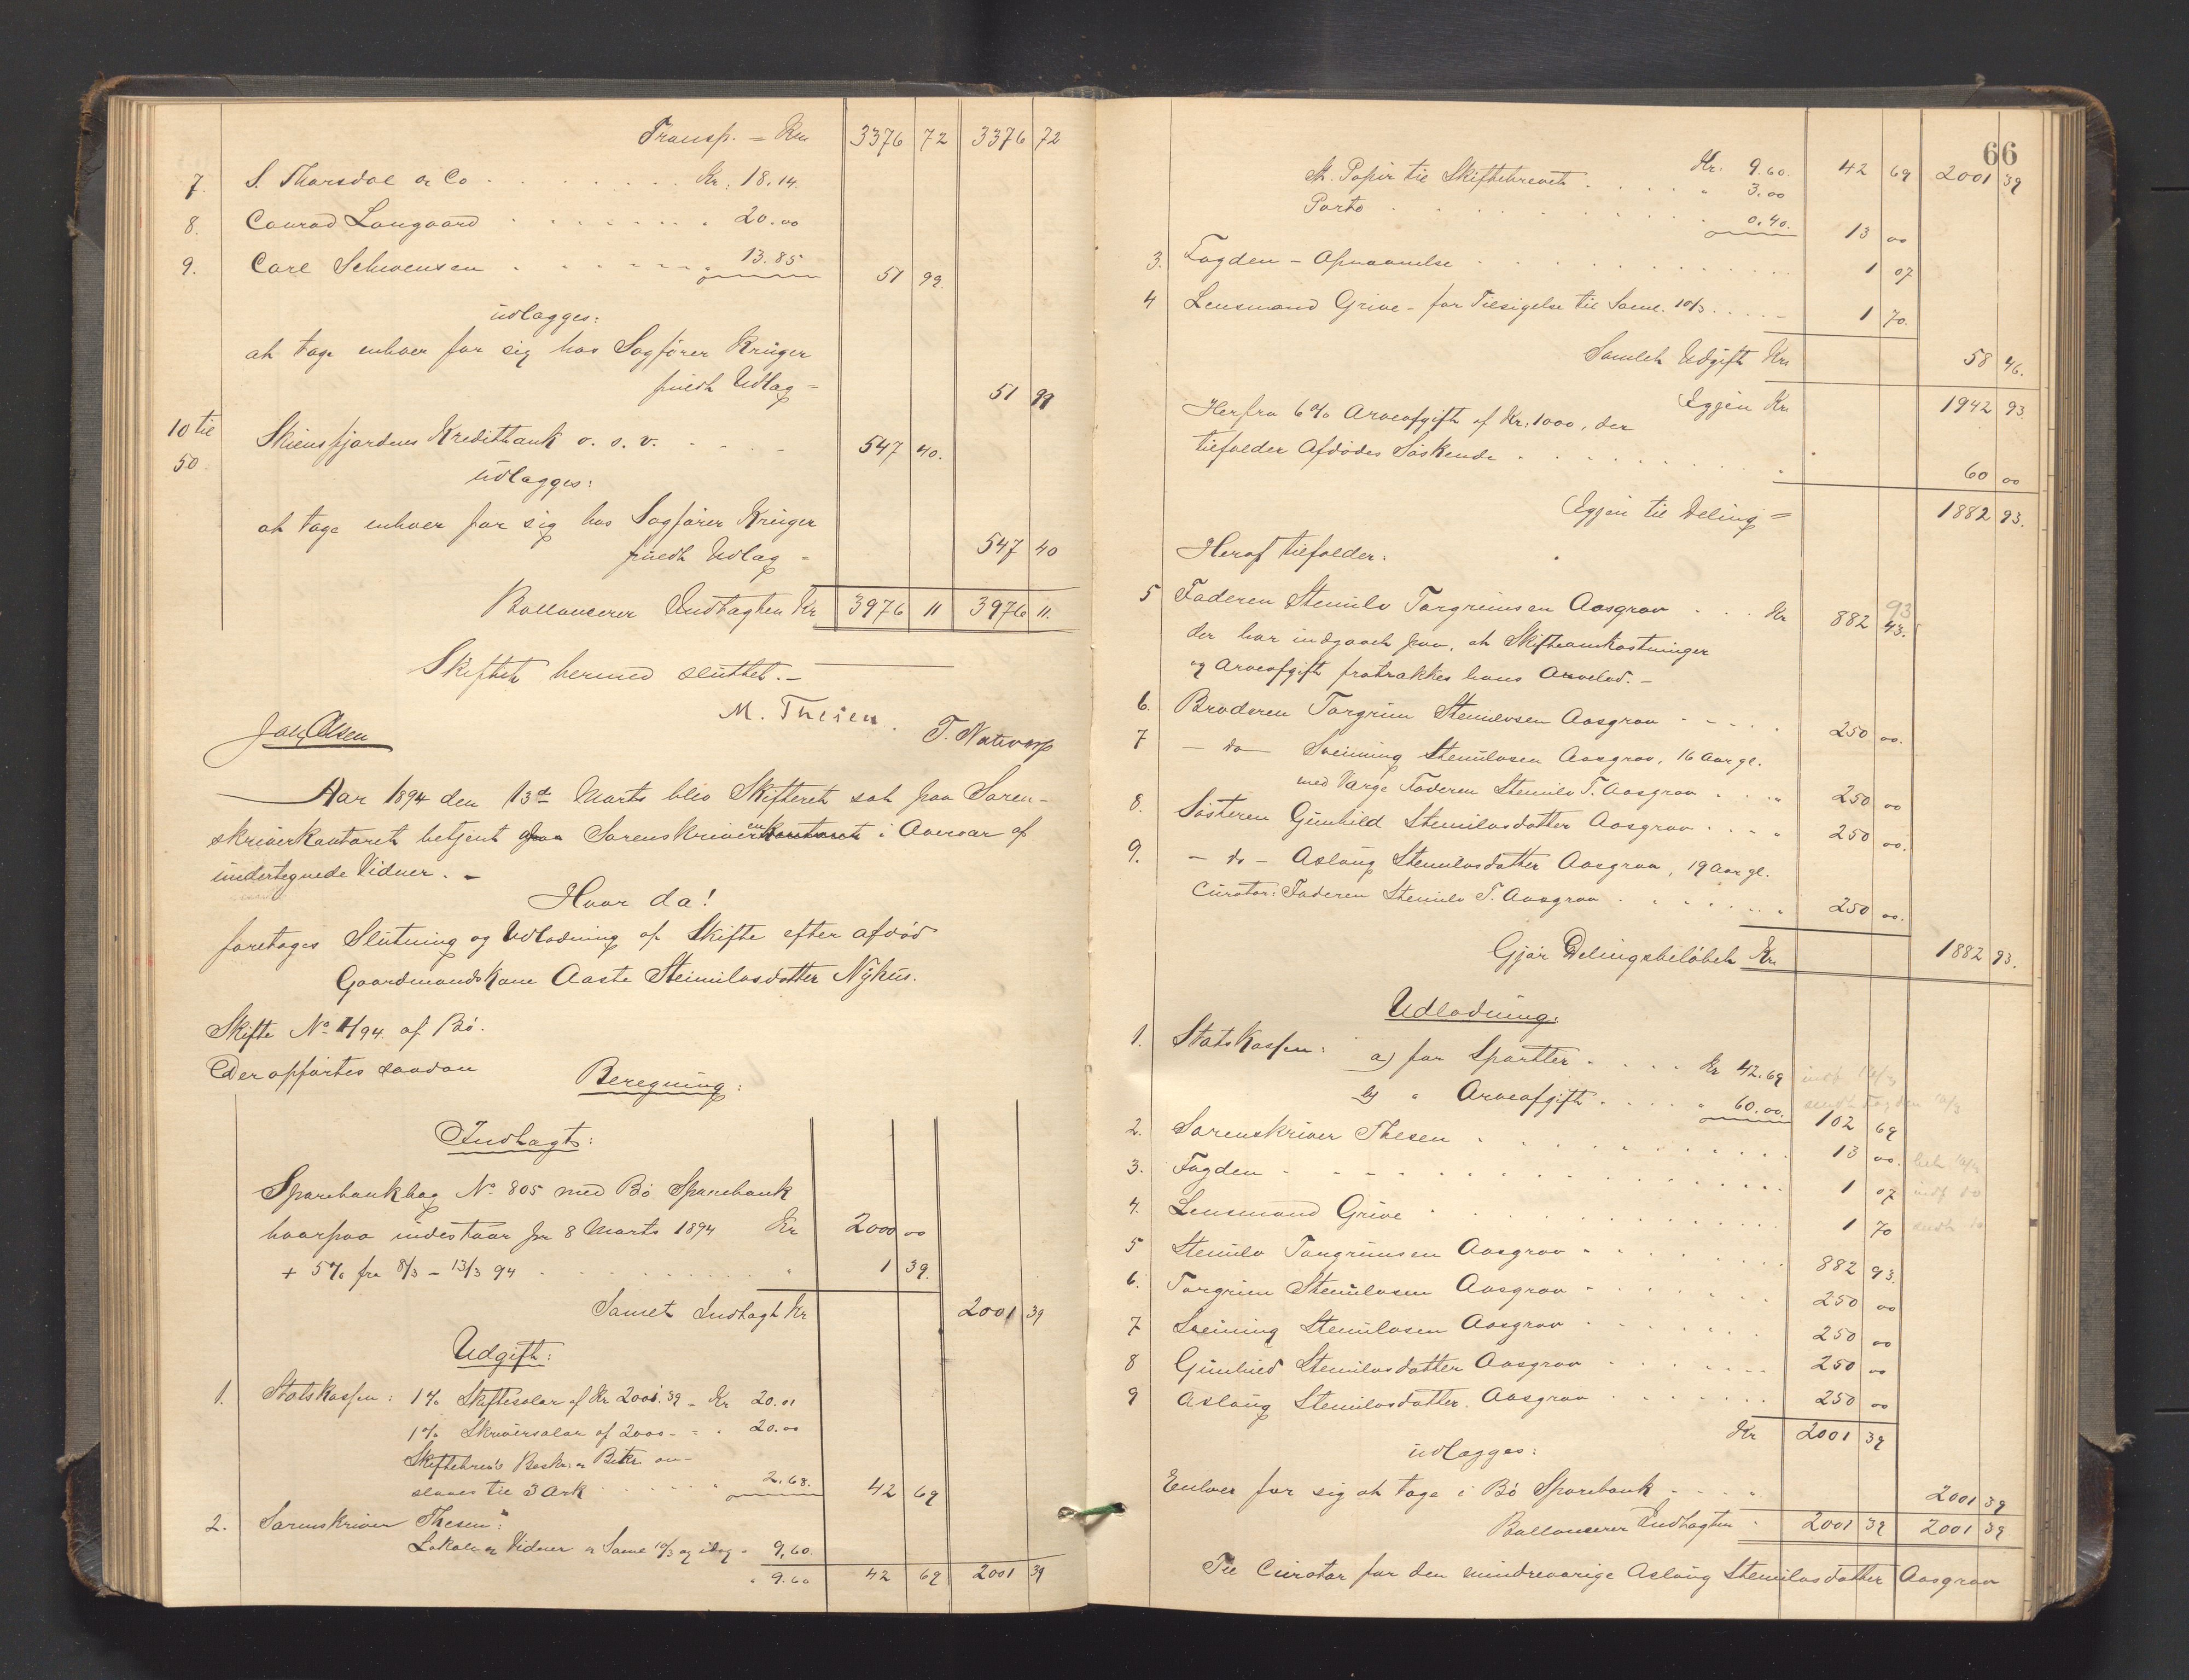 Transp. = Kr. 3376 72 3376 72
7. S. Thorsdal & Co Kr. 18.14.
8. Conrad Langaard 20.00
9. Carl Schwensen 13.85 51 99.
udlægges:
at tage enhver for sig hos Sagfører Krüger
hvorved Udlæg = 51 99
10 til 50 Skiensfjordens Kreditbank o. s. v. 547 40.
udlægges:
at tage enhver for sig hos Sagfører Krüger
Udlæg = 547 40
Ballancerer Indtægten Kr 3976 11 3976 11.
Skiftet hermed sluttet.–
M. Thesen.
Joh. Olsen T. Natvarp
Aar 1894 den 13de Marts blev Skifteret sat paa Soren-
skriverkontoret betjent af Sorenskriveren i Overvær af
undertegnede Vidner. –
Hvor da!
foretoges Slutning og Udlodning af Skifte efter afdød
Gaardmandskone Aaste Steinulvsdatter Nyhus.
Skifte No 1/94 af Bø.
Der opførtes saadan
Beregning:
Indtægt:
Sparebankbog No 805 med Bø Sparebank
hvorpaa indestaar pr 8 Marts 1894 Kr 2000 00
+ 5% fra 8/3 – 13/3 94 " 1 39.
Samlet Indtægt Kr 2001 39
Udgift:
1. Statskassen: 1% Skiftesalar af Kr 2001.39 = Kr 20.01
1% Skriversalar af 2000 - = " 20.00
Skiftebrevs Beskr. & Bekr. an-
slaaes til 3 Ark " 2.68. 42 69
2. Sorenskriver Thesen:
Lokale & Vidner & Saml 10/3 og idag = 9.60.
" 9.60 42 69 2001 39
66
Kr. 9.60. 42 69 2001 39
St. Papir til Skiftebrevet " 3.00
Porto 0.40. 13 00
3. Fogden – Opnævnelse 1 07
4 Lensmand Grive – for Tilsigelse til Saml. 10/3 1 70.
Samlet Udgift Kr 58 46.
Igjen Kr 1942 93.
Herfra 6% Arveafgift af Kr. 1000, der
tilfalder Afdødes Søskende 60 00
Igjen til Deling = 1882 93.
Heraf tilfalder.
5 Faderen Steinulv Torgrimsen Aasgrav Kr 882 93
der har indgaaet paa, at Skifteomkostninger
og Arveafgift fratrækkes hans Arvelod. –
6. Broderen Torgrim Steinulvsen Aasgrav 250 00.
7 – do – Sveinung Steinulvsen Aasgrav, 16 Aar gl.
med Værge Faderen Steinulv T. Aasgrav 250 00
8. Søsteren Gunhild Steinulvsdatter Aasgrav 250 00.
9. – do – Aslaug Steinulvsdatter Aasgrav, 19 Aar gl.
Curator: Faderen Steinulv T. Aasgrav 250 00.
Gjør Delingsbeløbet Kr 1882 93.
Udlodning:
1. Statskassen: a) for Sportler Kr 42.69
b) " Arveafgift " 60.00. 102 69
2. Sorenskriver Thesen 13 00.
3. Fogden 1 07
4. Lensmand Grive 1 70
5 Steinulv Torgrimsen Aasgrav 882 93.
6. Torgrim Steinulvsen Aasgrav 250 00
7 Sveinung Steinulvsen Aasgrav 250 00
8 Gunhild Steinulvsdatter Aasgrav 250 00
9 Aslaug Steinulvsdatter Aasgrav 250 00
Kr 2001 39
udlægges:
Enhver for sig at tage i Bø Sparebank 2001 39
Ballancerer Indtægten 2001 39 2001 39
Til Curator for den mindreaarige Aslaug Steinulvsdatter Aasgrav